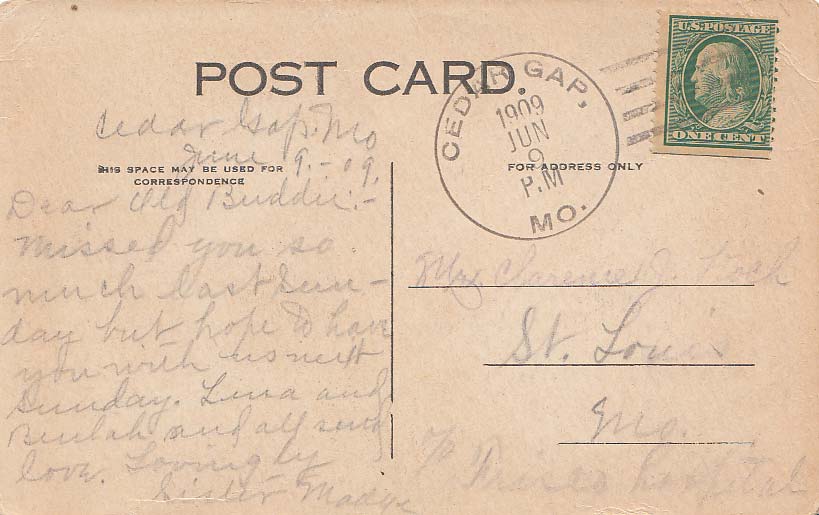 POST CARD.
Cedar Gap. Mo
June 9. - 09.
THIS SPACE MAY BE USED FOR
CORRESPONDENCE
Dear Old Buddie:-
Missed you so
much last Sun-
day but hope to have
you with us next
Sunday. Lena and
Beulah and all send
love. Lovingly
Sister Madge
CEDAR GAP,
1909
JUN
9
P.M
MO.
U.S. POSTAGE
ONE CENT
FOR ADDRESS ONLY
Clarence J. Koch
St. Louis
Mo.
Frisco hospital